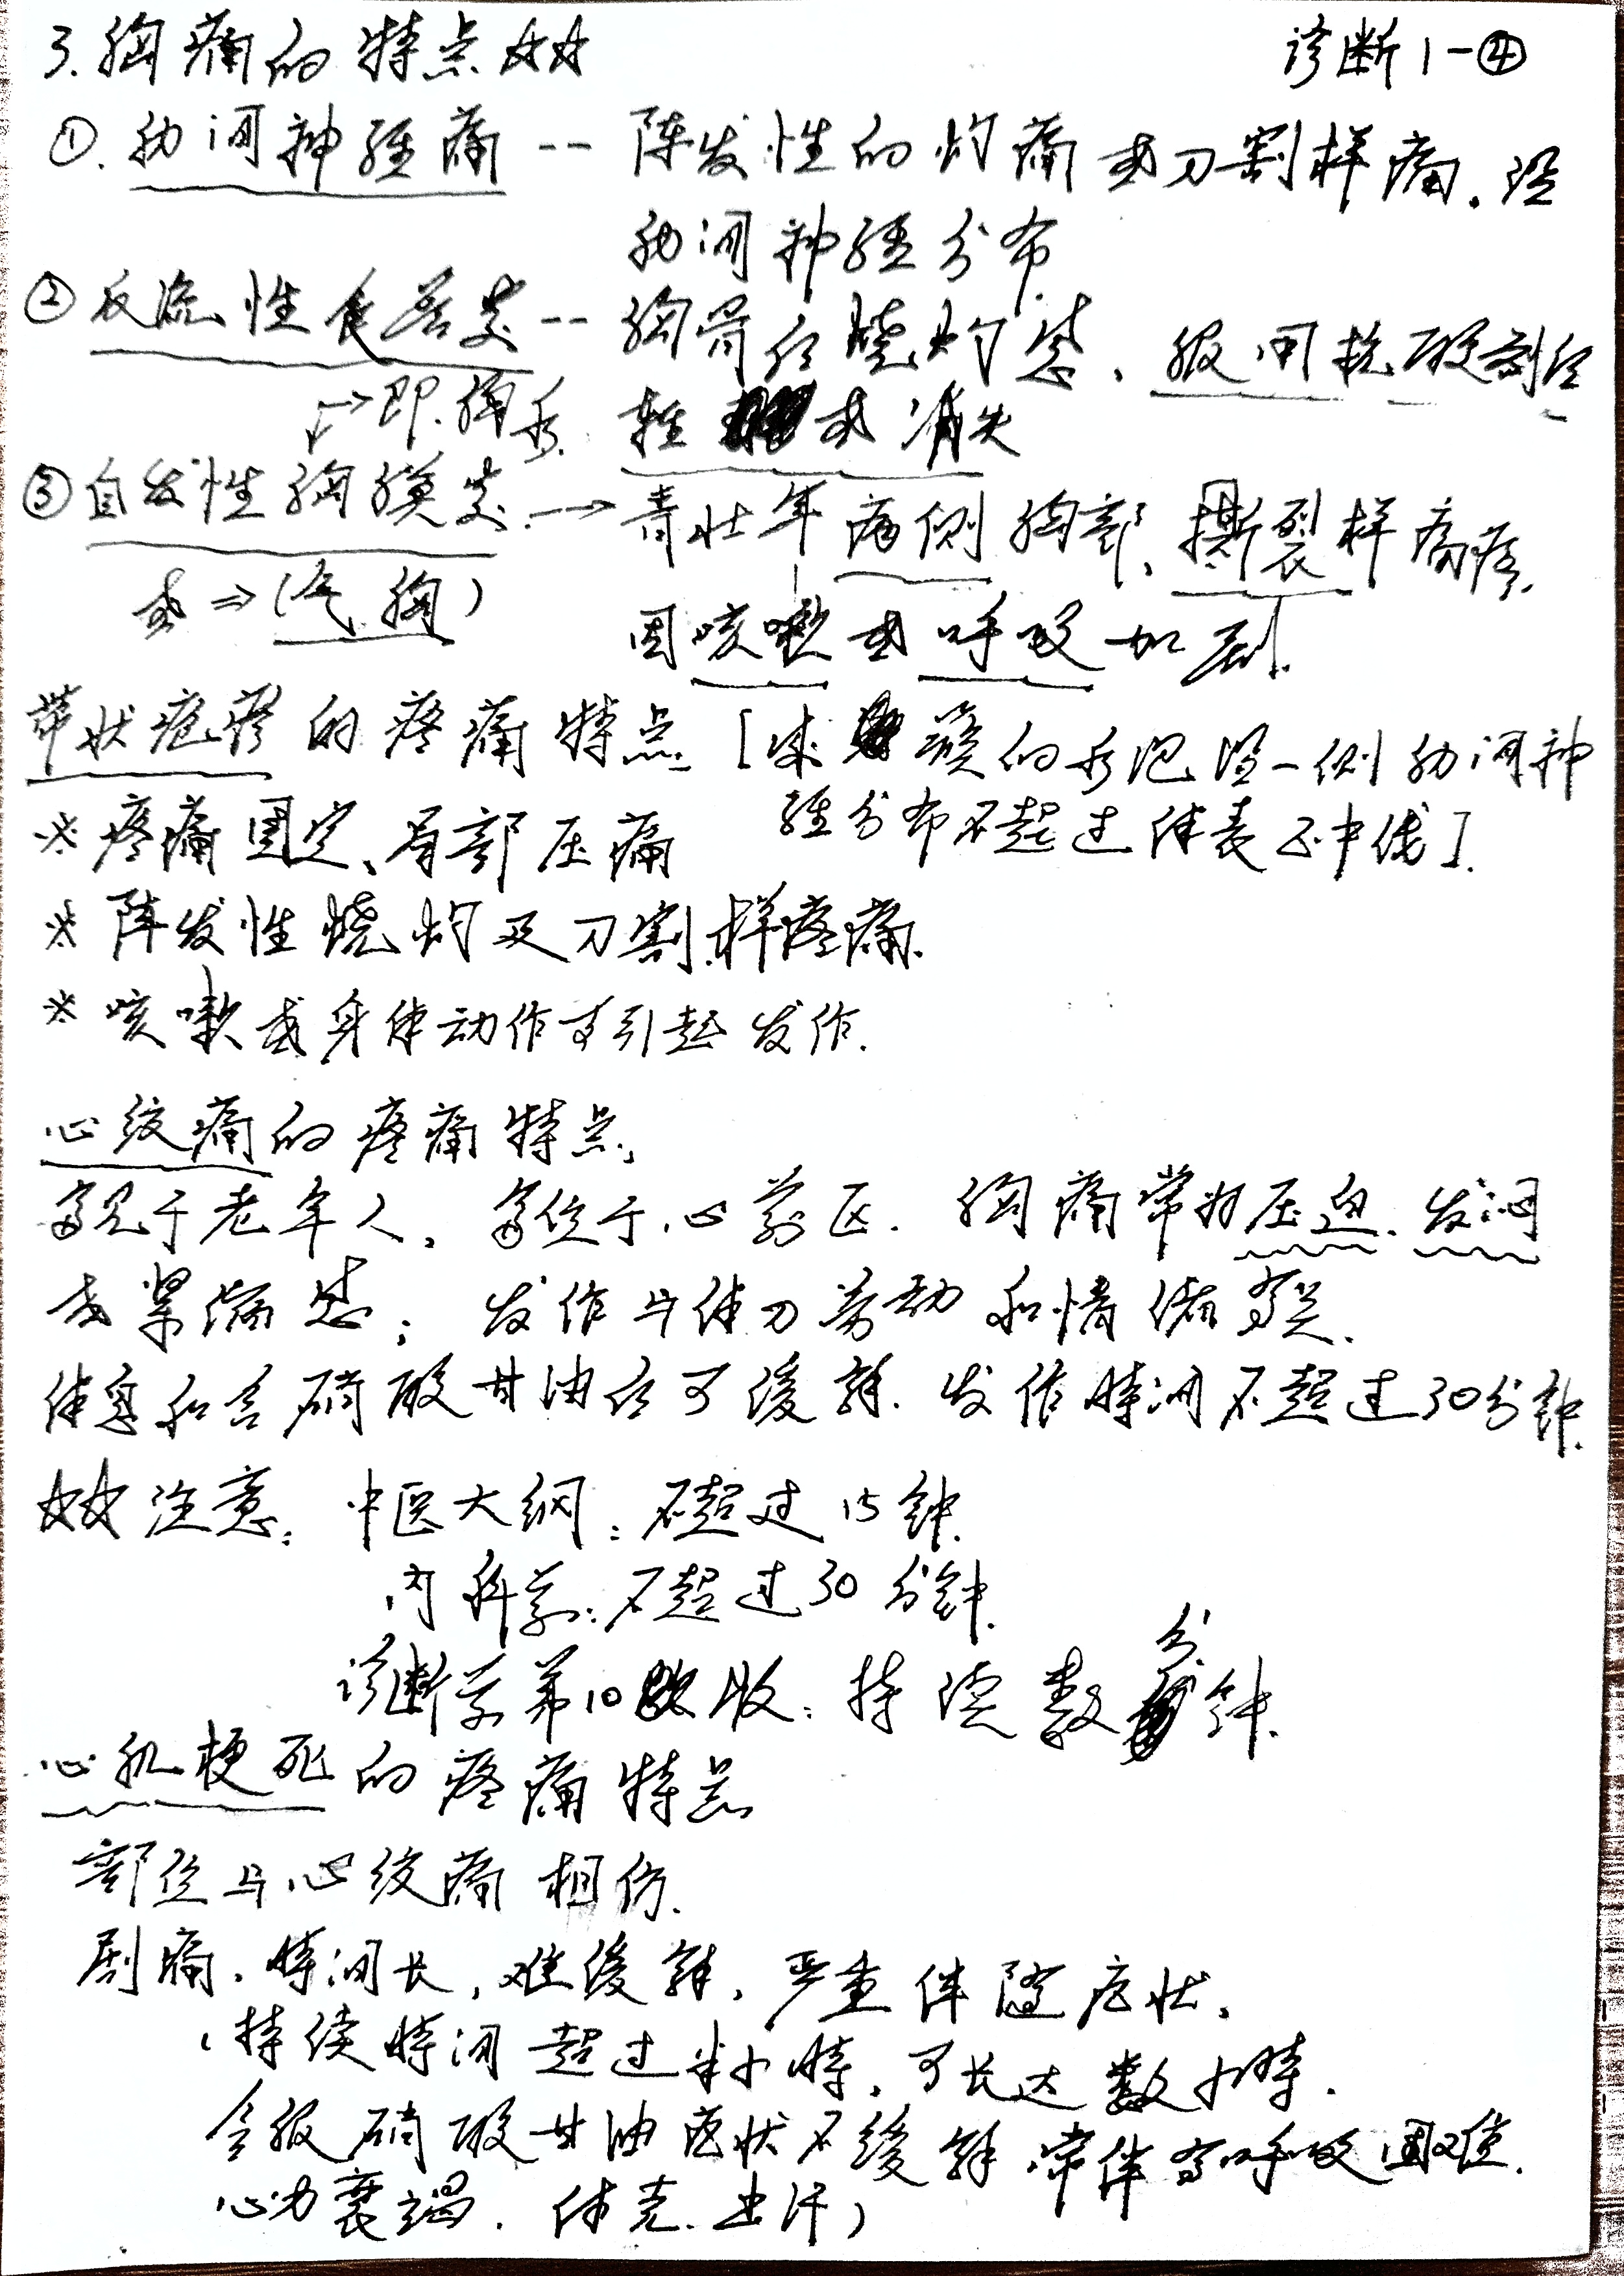 3.胸痛的特点☆☆
诊断1-④
①.肋间神经痛--阵发性的灼痛或刀割样痛.沿
肋间神经分布.
②反流性食管炎--胸骨后烧灼感、服用抗酸剂后
→即胸水. 轻或消失
③自发性胸膜炎.→青壮年患侧胸部、撕裂样疼痛.
或⇒(气胸)
因咳嗽或呼吸加剧.
带状疱疹的疼痛特点[成簇的水泡沿一侧肋间神
经分布不超过体表正中线].
※疼痛固定、局部压痛
※阵发性烧灼及刀割样疼痛.
※咳嗽或身体动作可引起发作.
心绞痛的疼痛特点,
多见于老年人,多位于心前区.胸痛常为压迫.发闷
或紧缩感;发作与体力劳动和情绪有关.
休息和含硝酸甘油后可缓解.发作时间不超过30分钟.
☆☆注意:中医大纲:不超过15钟.
内科学:不超过30分钟.
诊断学第10版:持续数分钟.
心肌梗死的疼痛特点
部位与心绞痛相仿.
剧痛.时间长,难缓解,严重伴随症状,
(持续时间超过半小时,可长达数小时.
含服硝酸甘油症状不缓解 常伴有呼吸困难.
心力衰竭.休克.出汗)